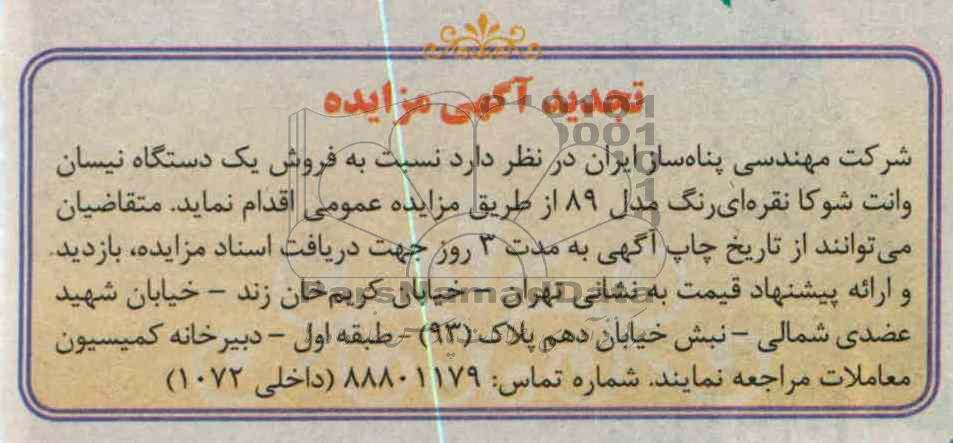 تجدید آگهی مزایده
شرکت مهندسی پناه‌ساز ایران در نظر دارد نسبت به فروش یک دستگاه نیسان
وانت شوکا نقره‌ای‌رنگ مدل ۸۹ از طریق مزایده عمومی اقدام نماید. متقاضیان
می‌توانند از تاریخ چاپ آگهی به مدت ۳ روز جهت دریافت اسناد مزایده، بازدید
و ارائه پیشنهاد قیمت به نشانی تهران – خیابان کریم‌خان زند – خیابان شهید
عضدی شمالی – نبش خیابان دهم پلاک (۹۳) – طبقه اول – دبیرخانه کمیسیون
معاملات مراجعه نمایند. شماره تماس: ۸۸۸۰۱۱۷۹ (داخلی ۱۰۷۲)
ParsNamadData